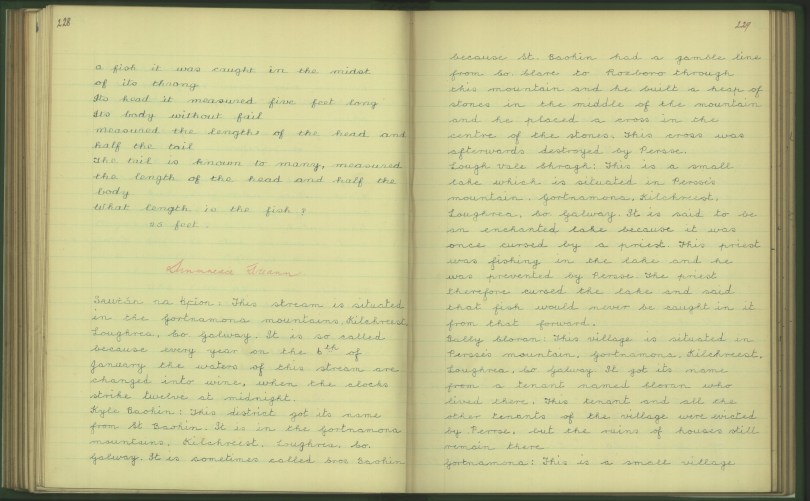 228
a fish it was caught in the midst
of its throng
Its head it measured five feet long
Its body without fail
measured the lengths of the head and
half the tail
The tail is known to many, measured
the length of the head and half the
body
What length is the fish?
80 feet.
Sruthán na bFíon: This stream is situated
in the Gortnamona mountains, Kilchreest,
Loughrea, Co. Galway. It is so called
because every year on the 6th of
January the waters of this stream are
changed into wine, when the clocks
strike twelve at midnight.
Kyle Baohin: This district got its name
from St Baohin. It is in the Gortnamona
mountains, Kilchreest, Loughrea, Co.
Galway. It is sometimes called Cros Baohin
229
because St. Baohin had a gamble line
from Co. Clare to Roxboro through
this mountain and he built a heap of
stones in the middle of the mountain
and he placed a cross in the
centre of the stones. This cross was
afterwards destroyed by Persse.
Lough Vale Bhragh: This is a small
lake which is situated in Persse's
mountain. Gortnamona, Kilchreest,
Loughrea, Co. Galway. It is said to be
an enchanted lake because it was
once cursed by a priest. This priest
was fishing in the lake and he
was prevented by Persse. The priest
therefore cursed the lake and said
that fish would never be caught in it
from that forward.
Bally Sloran: This village is situated in
Persses mountain, Gortnamona, Kilchreest,
Loughrea, Co Galway It got its name
from a tenant named Sloran who
lived there. This tenant and all the
other tenants of the village were evicted
by Persse, but the ruins of houses still
remain there.
Gortnamona: This is a small village